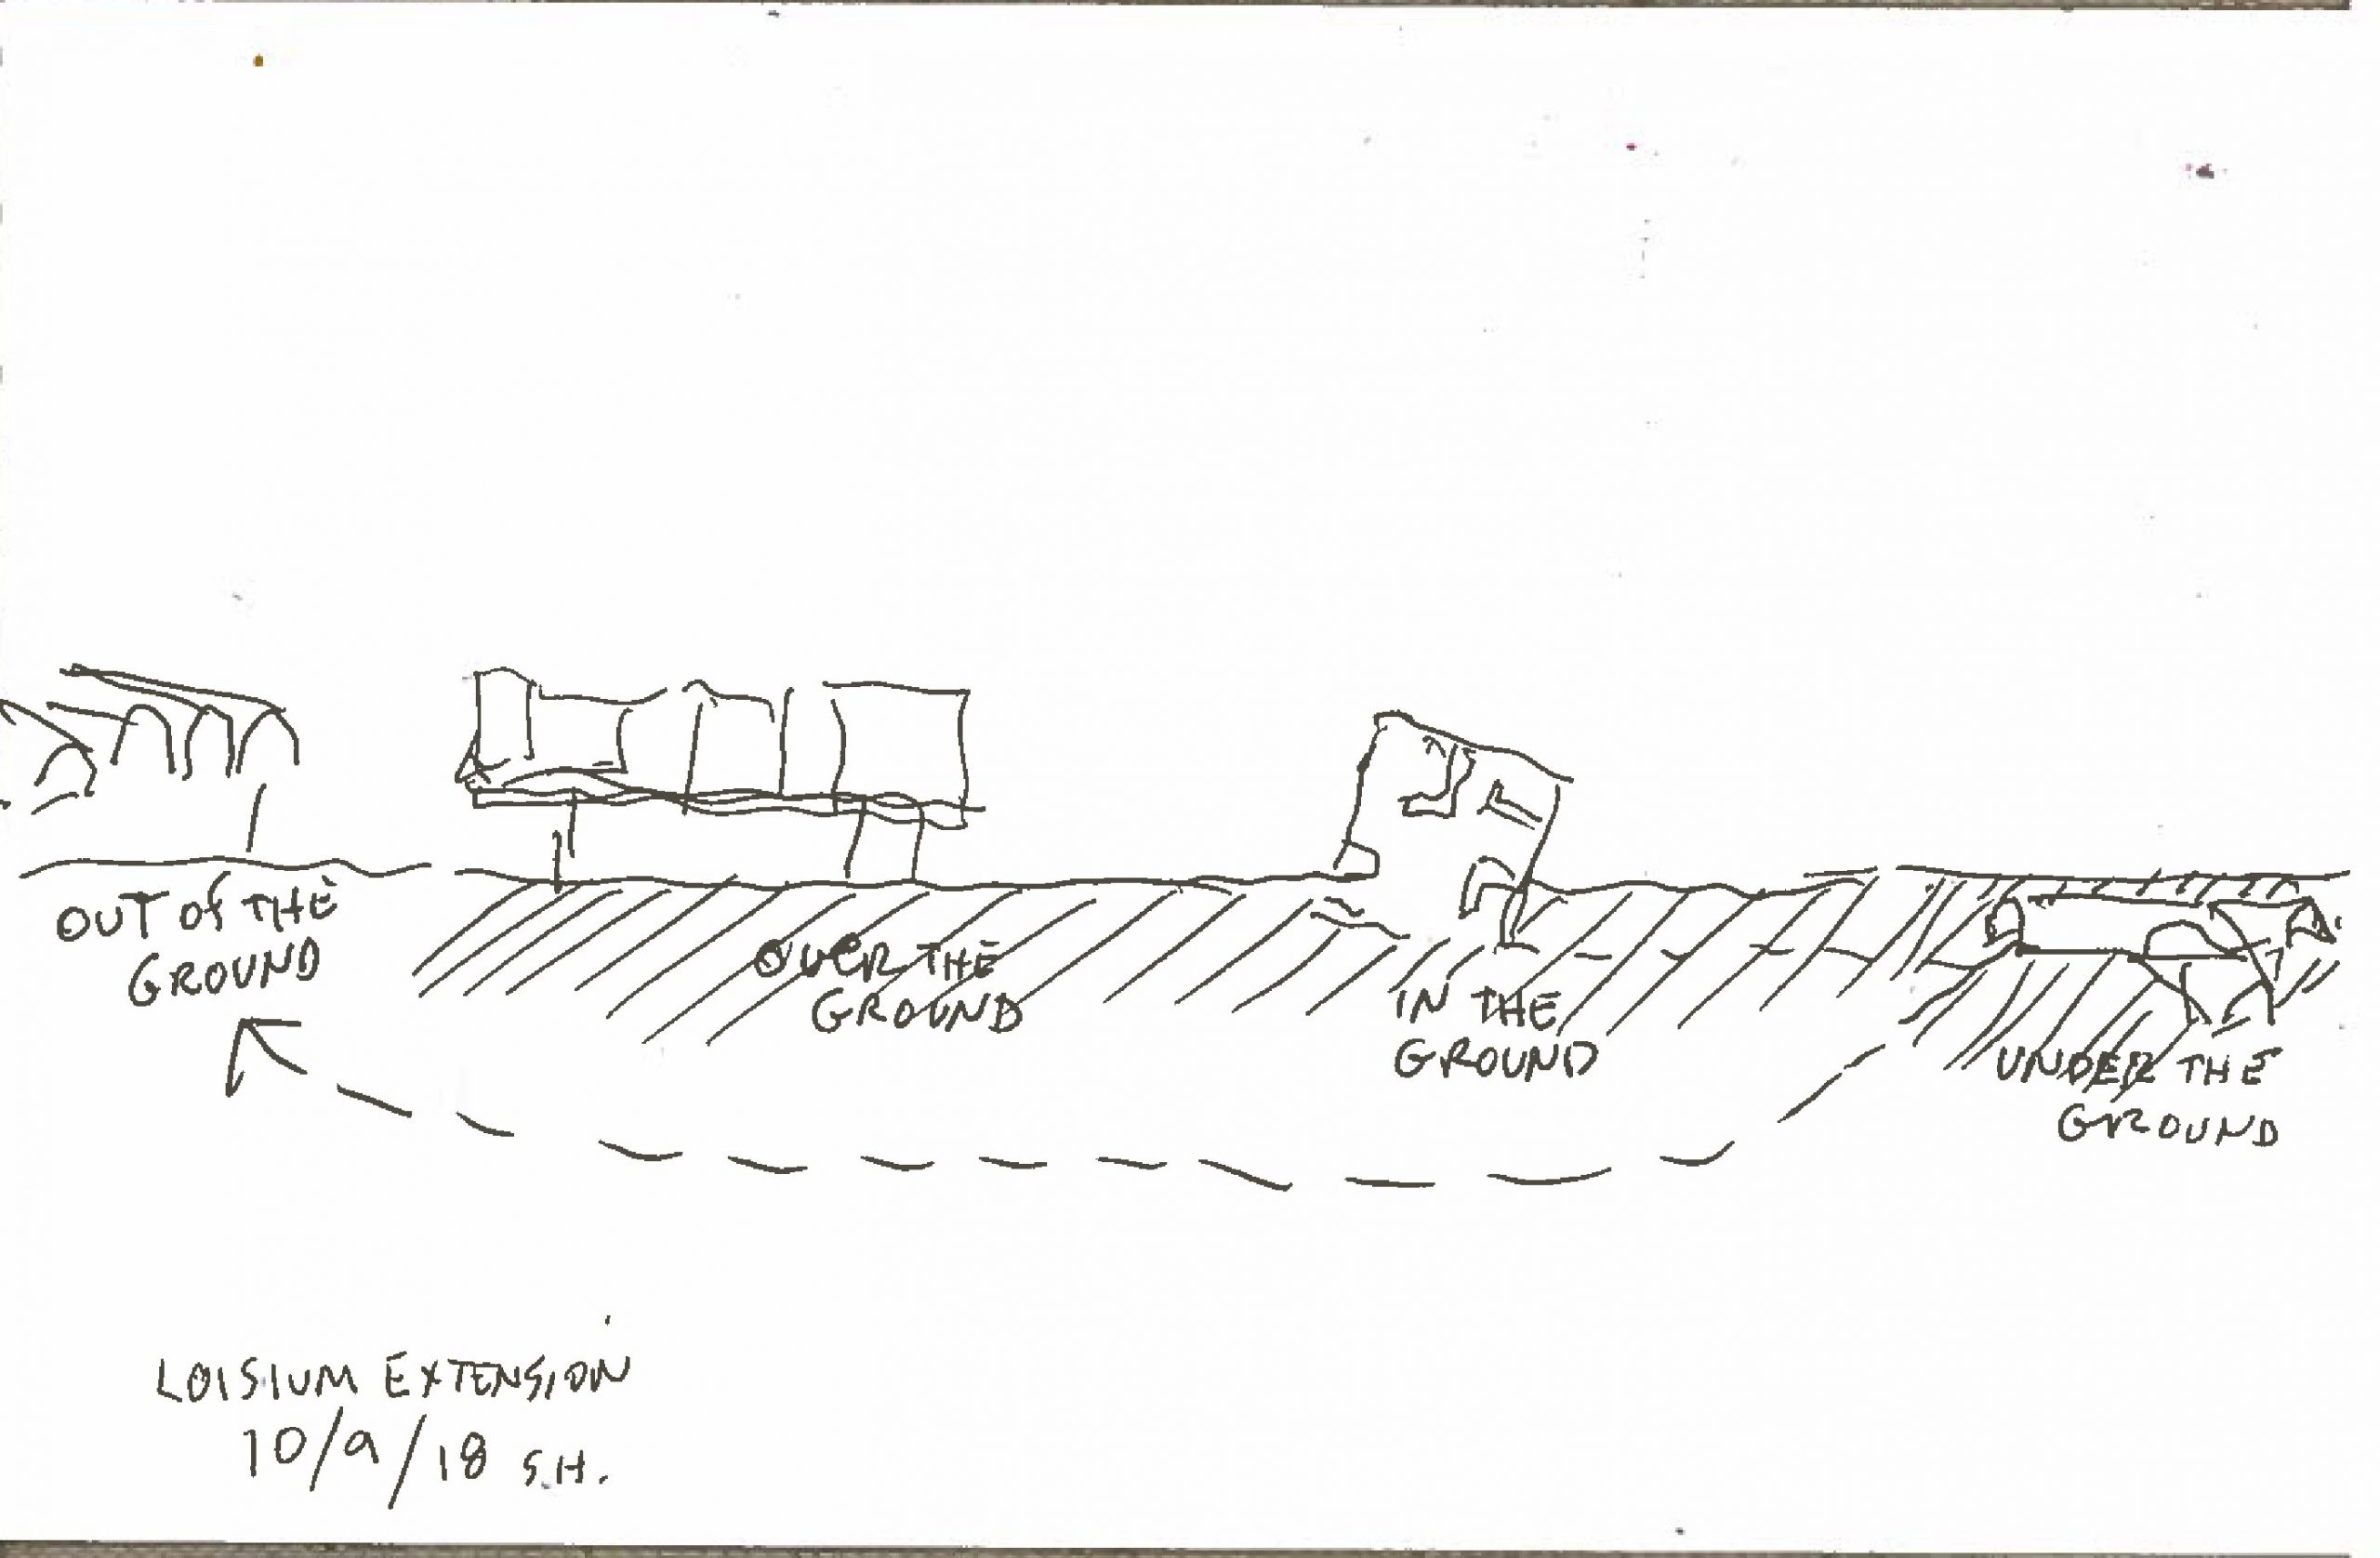 OUT Of THE
GROUND
OVER THE
GROUND
IN THE
GROUND
UNDER THE
GROUND
LOISIUM EXTENSION
10/9/18 S.H.